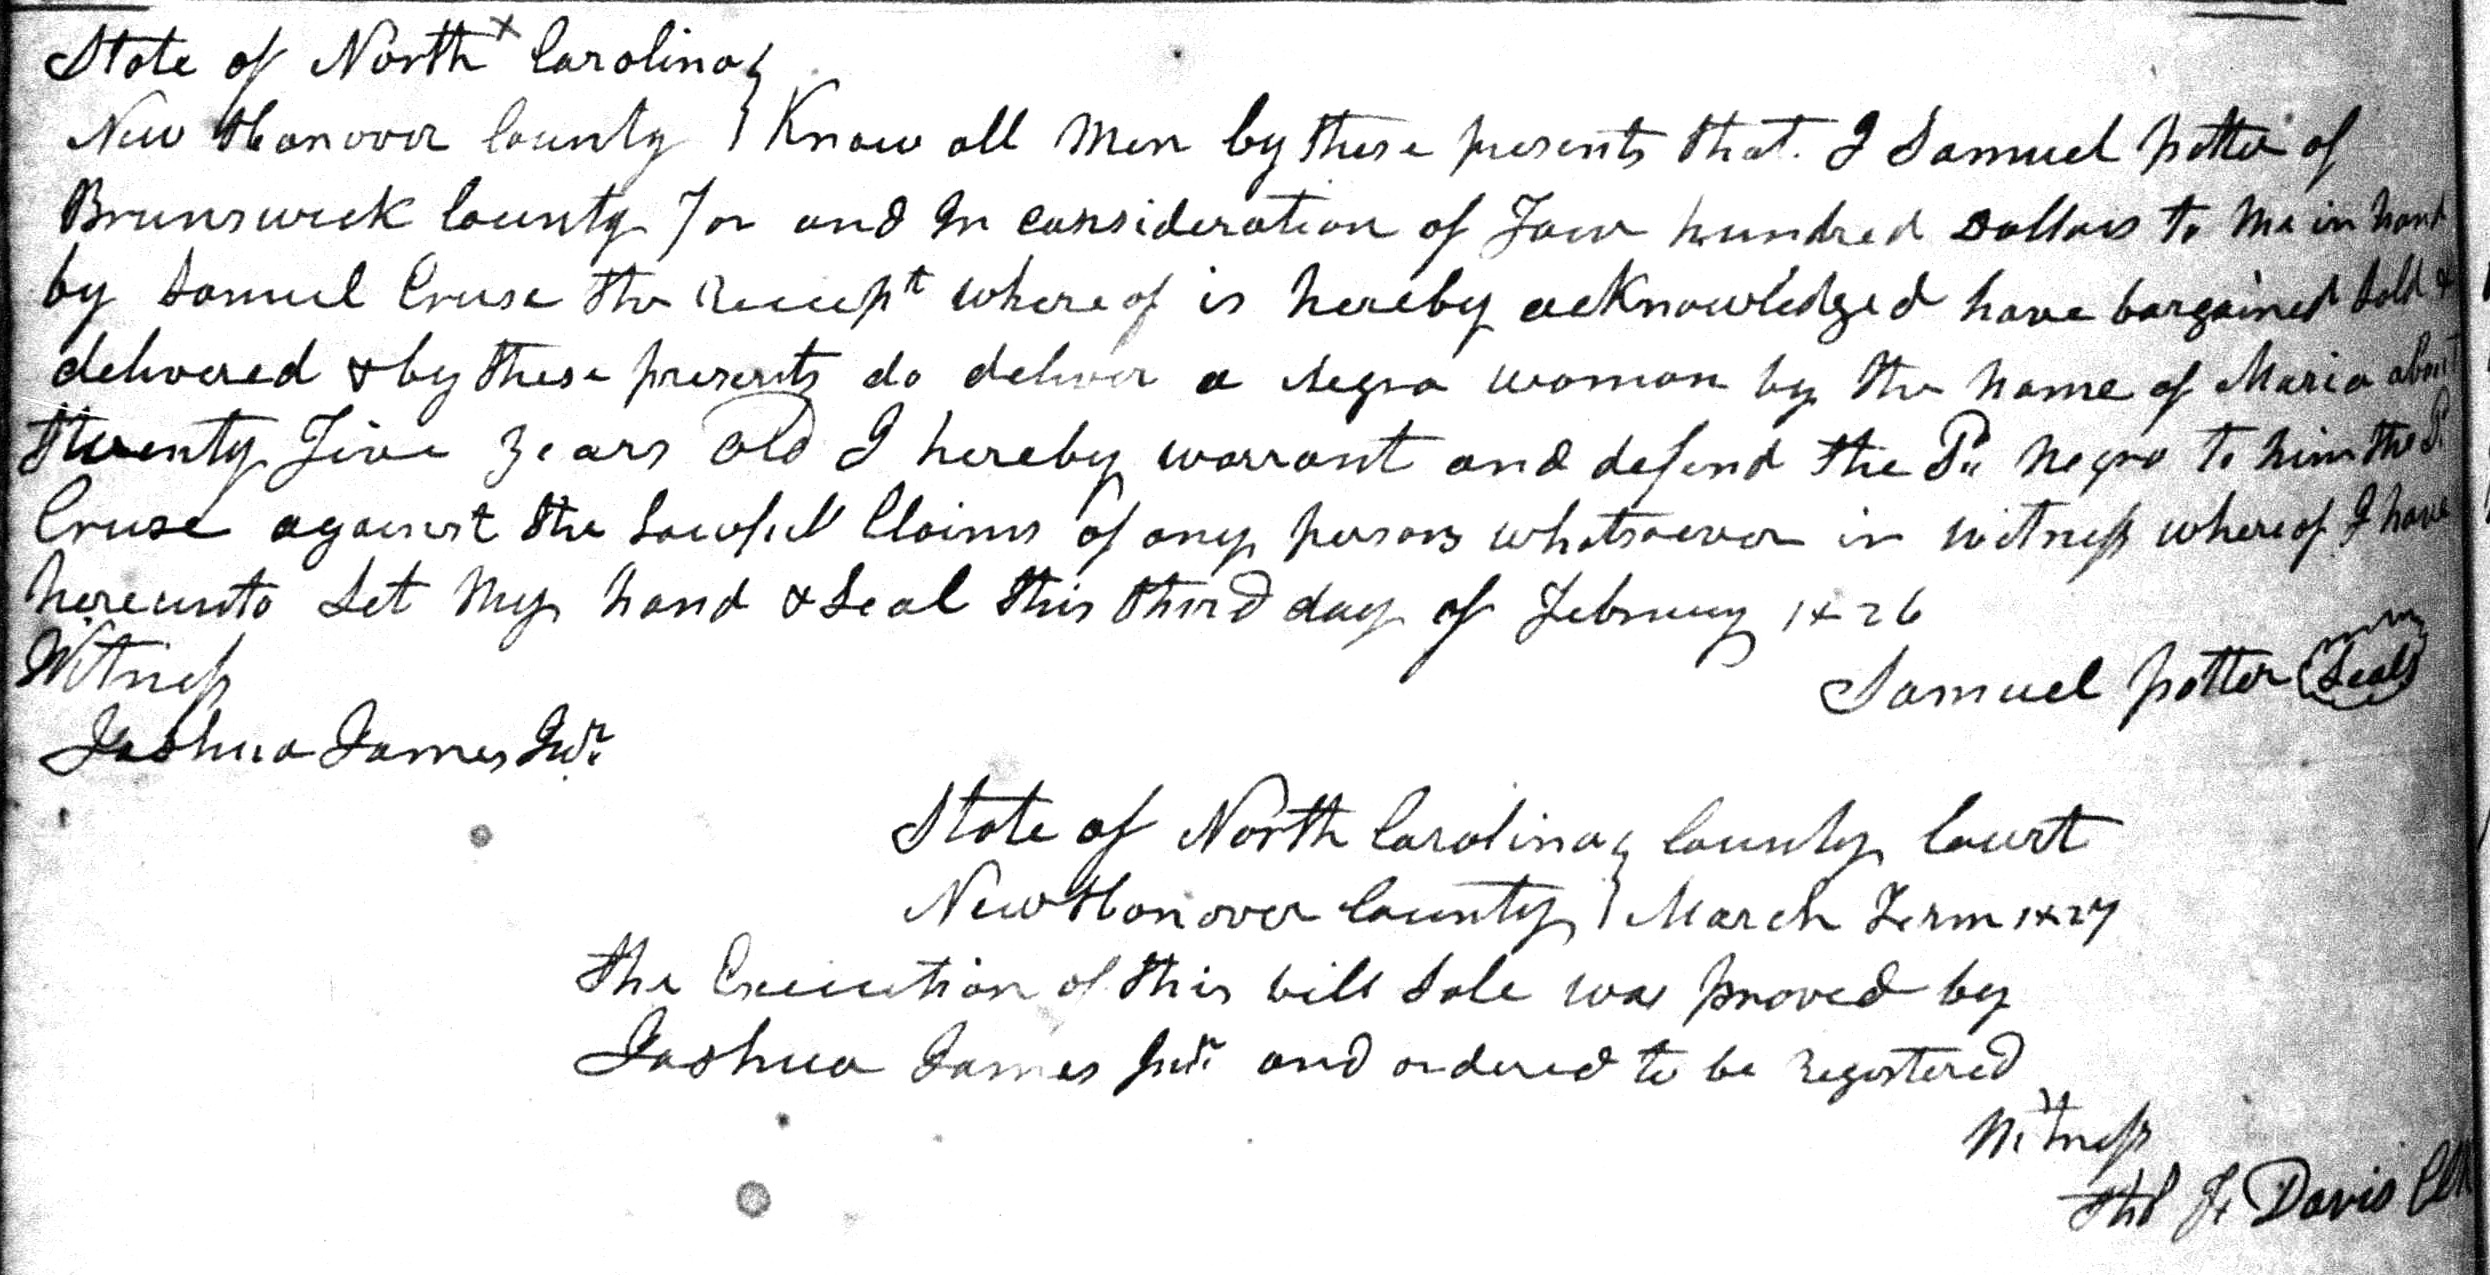 State of North Carolina
New Hanover County } Know all Men by these presents that I Samuel potter of
Brunswick County for and In consideration of Four hundred Dollars to me in hand
by Samuel Cruse the Receipt where of is hereby acknowledged have bargained Sold &
delivered & by these presents do deliver a Negro woman by the name of Maria about
twenty Five years old I hereby warrant and defend the Sd. Negro to him the Sd.
Cruse against the Lawfull Claims of any persons whatsoever in witness whereof I have
hereunto Set My hand & Seal this third day of February 1826
Witness
Samuel potter Seal
Joshua James Junr.
State of North Carolina } County Court
New Hanover County } March Term 1827
the Execution of this bill Sale was proved by
Joshua James Junr. and ordered to be registered
Witness
F. Davis Clk